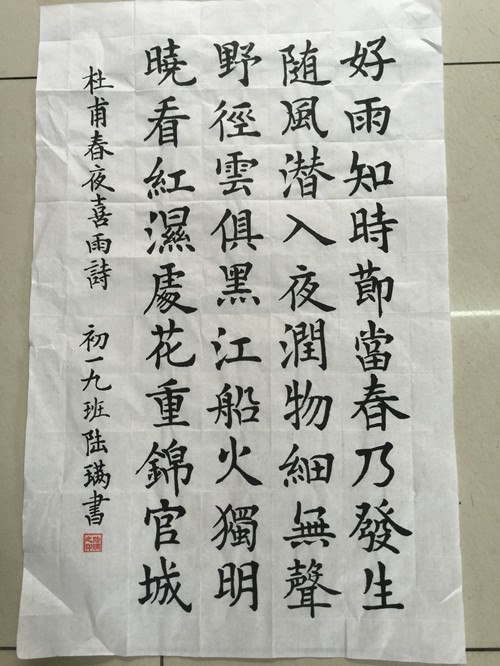 好雨知時節當春乃發生
随風潜入夜潤物細無聲
野徑雲俱黑江船火獨明
曉看紅濕處花重錦官城
杜甫春夜喜雨詩 初一九班陆璊書